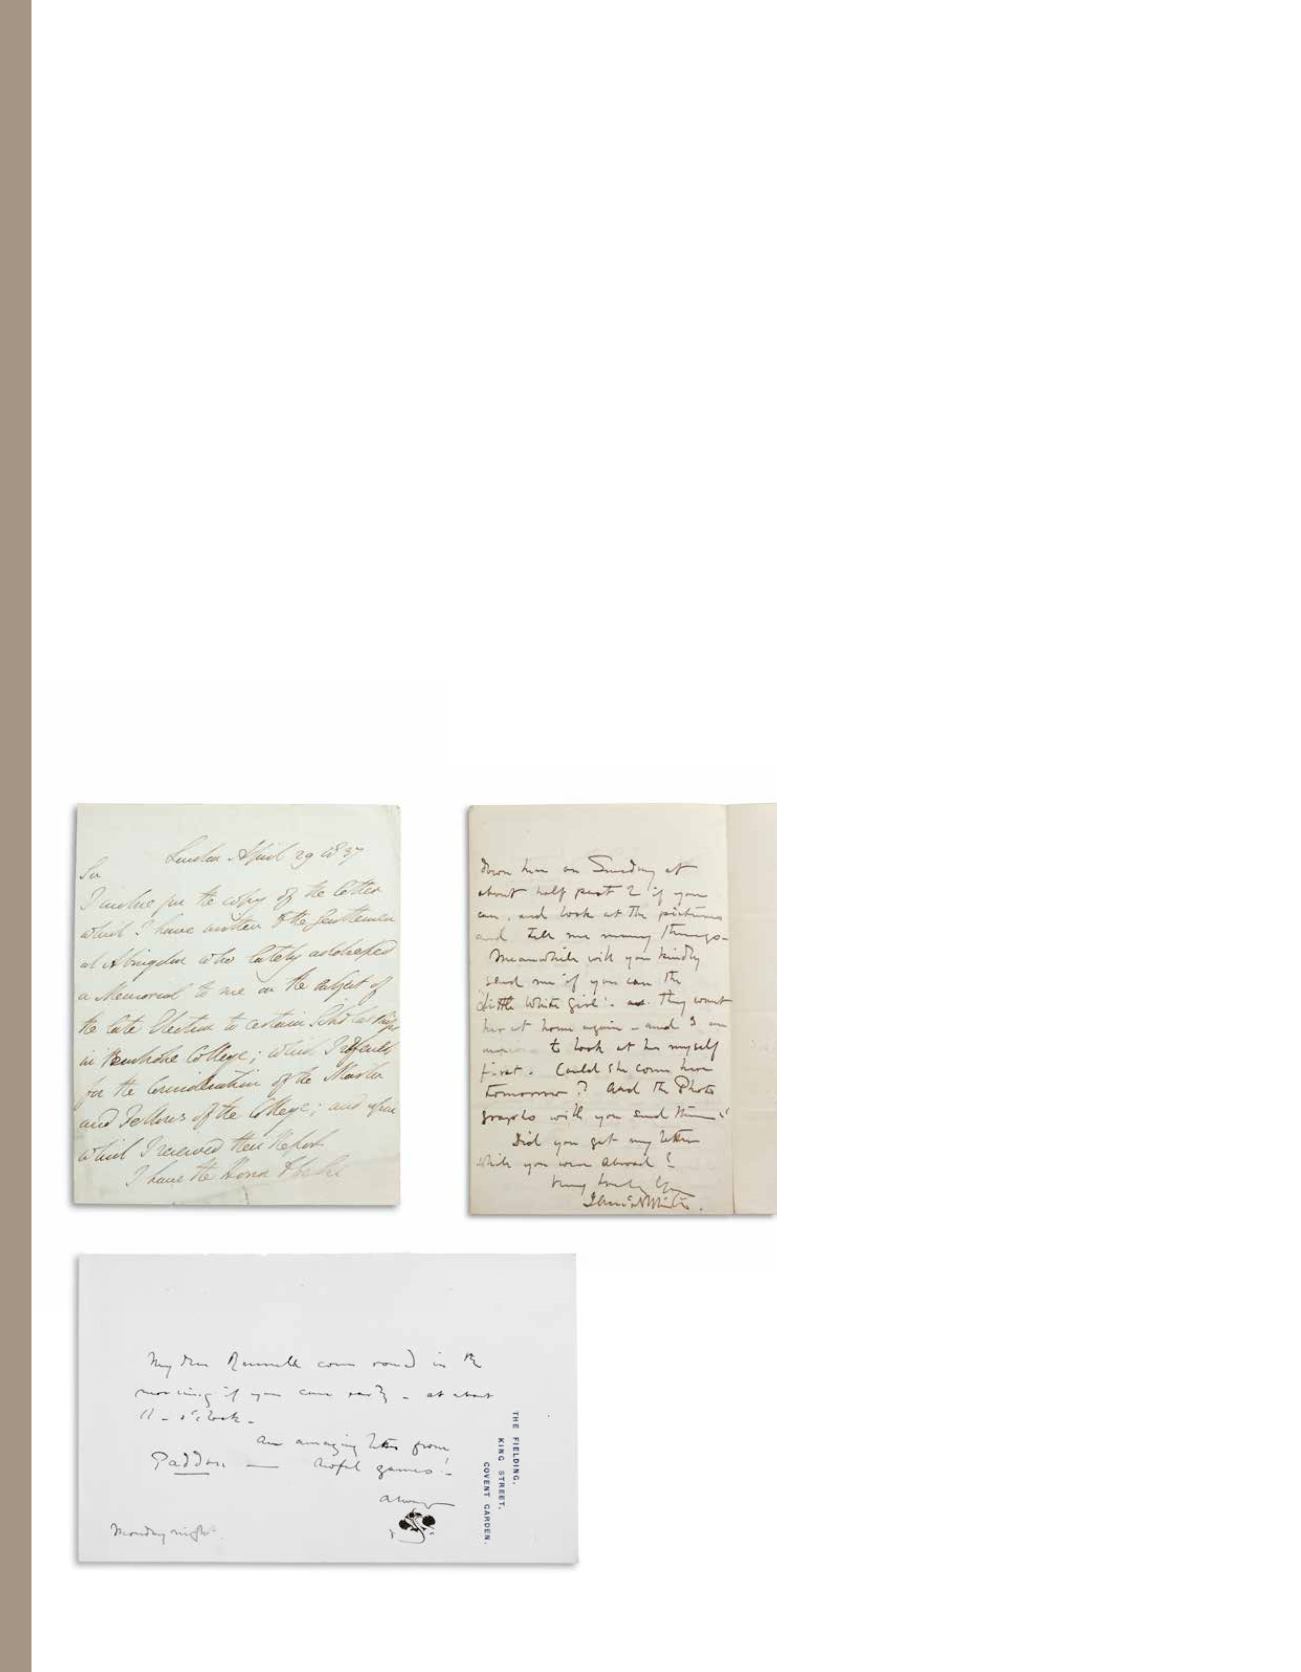 London April 29 1837
Sir
I inclose you the copy of the letter
which I have written to the Gentlemen
at Abingdon who lately addressed
a Memorial to me on the subject of
the late Election to certain Scholarships
in Pembroke College; which I referred
for the Consideration of the Master
and Fellows of the College; and upon
which I received their Report
I have the Honor to be Sir
down here on Sunday at
about half past 2 if you
can, and look at the pictures
and tell me many things—
Meanwhile will you kindly
send me if you can the
"little White Girl". as they want
her at home again - and I am
to look at her myself
first. Could she come here
tomorrow? And the Photo
graphs will you send them?
Did you get my letter
while you were abroad?
Very truly Yrs
J. A. McN. Whistler.
My dear Rennell come round in the
morning if you can early - at about
11 - o'clock -
An amazing letter from
Paddon — awful games!
Always
Monday night.
THE FIELDING,
KING STREET,
COVENT GARDEN.